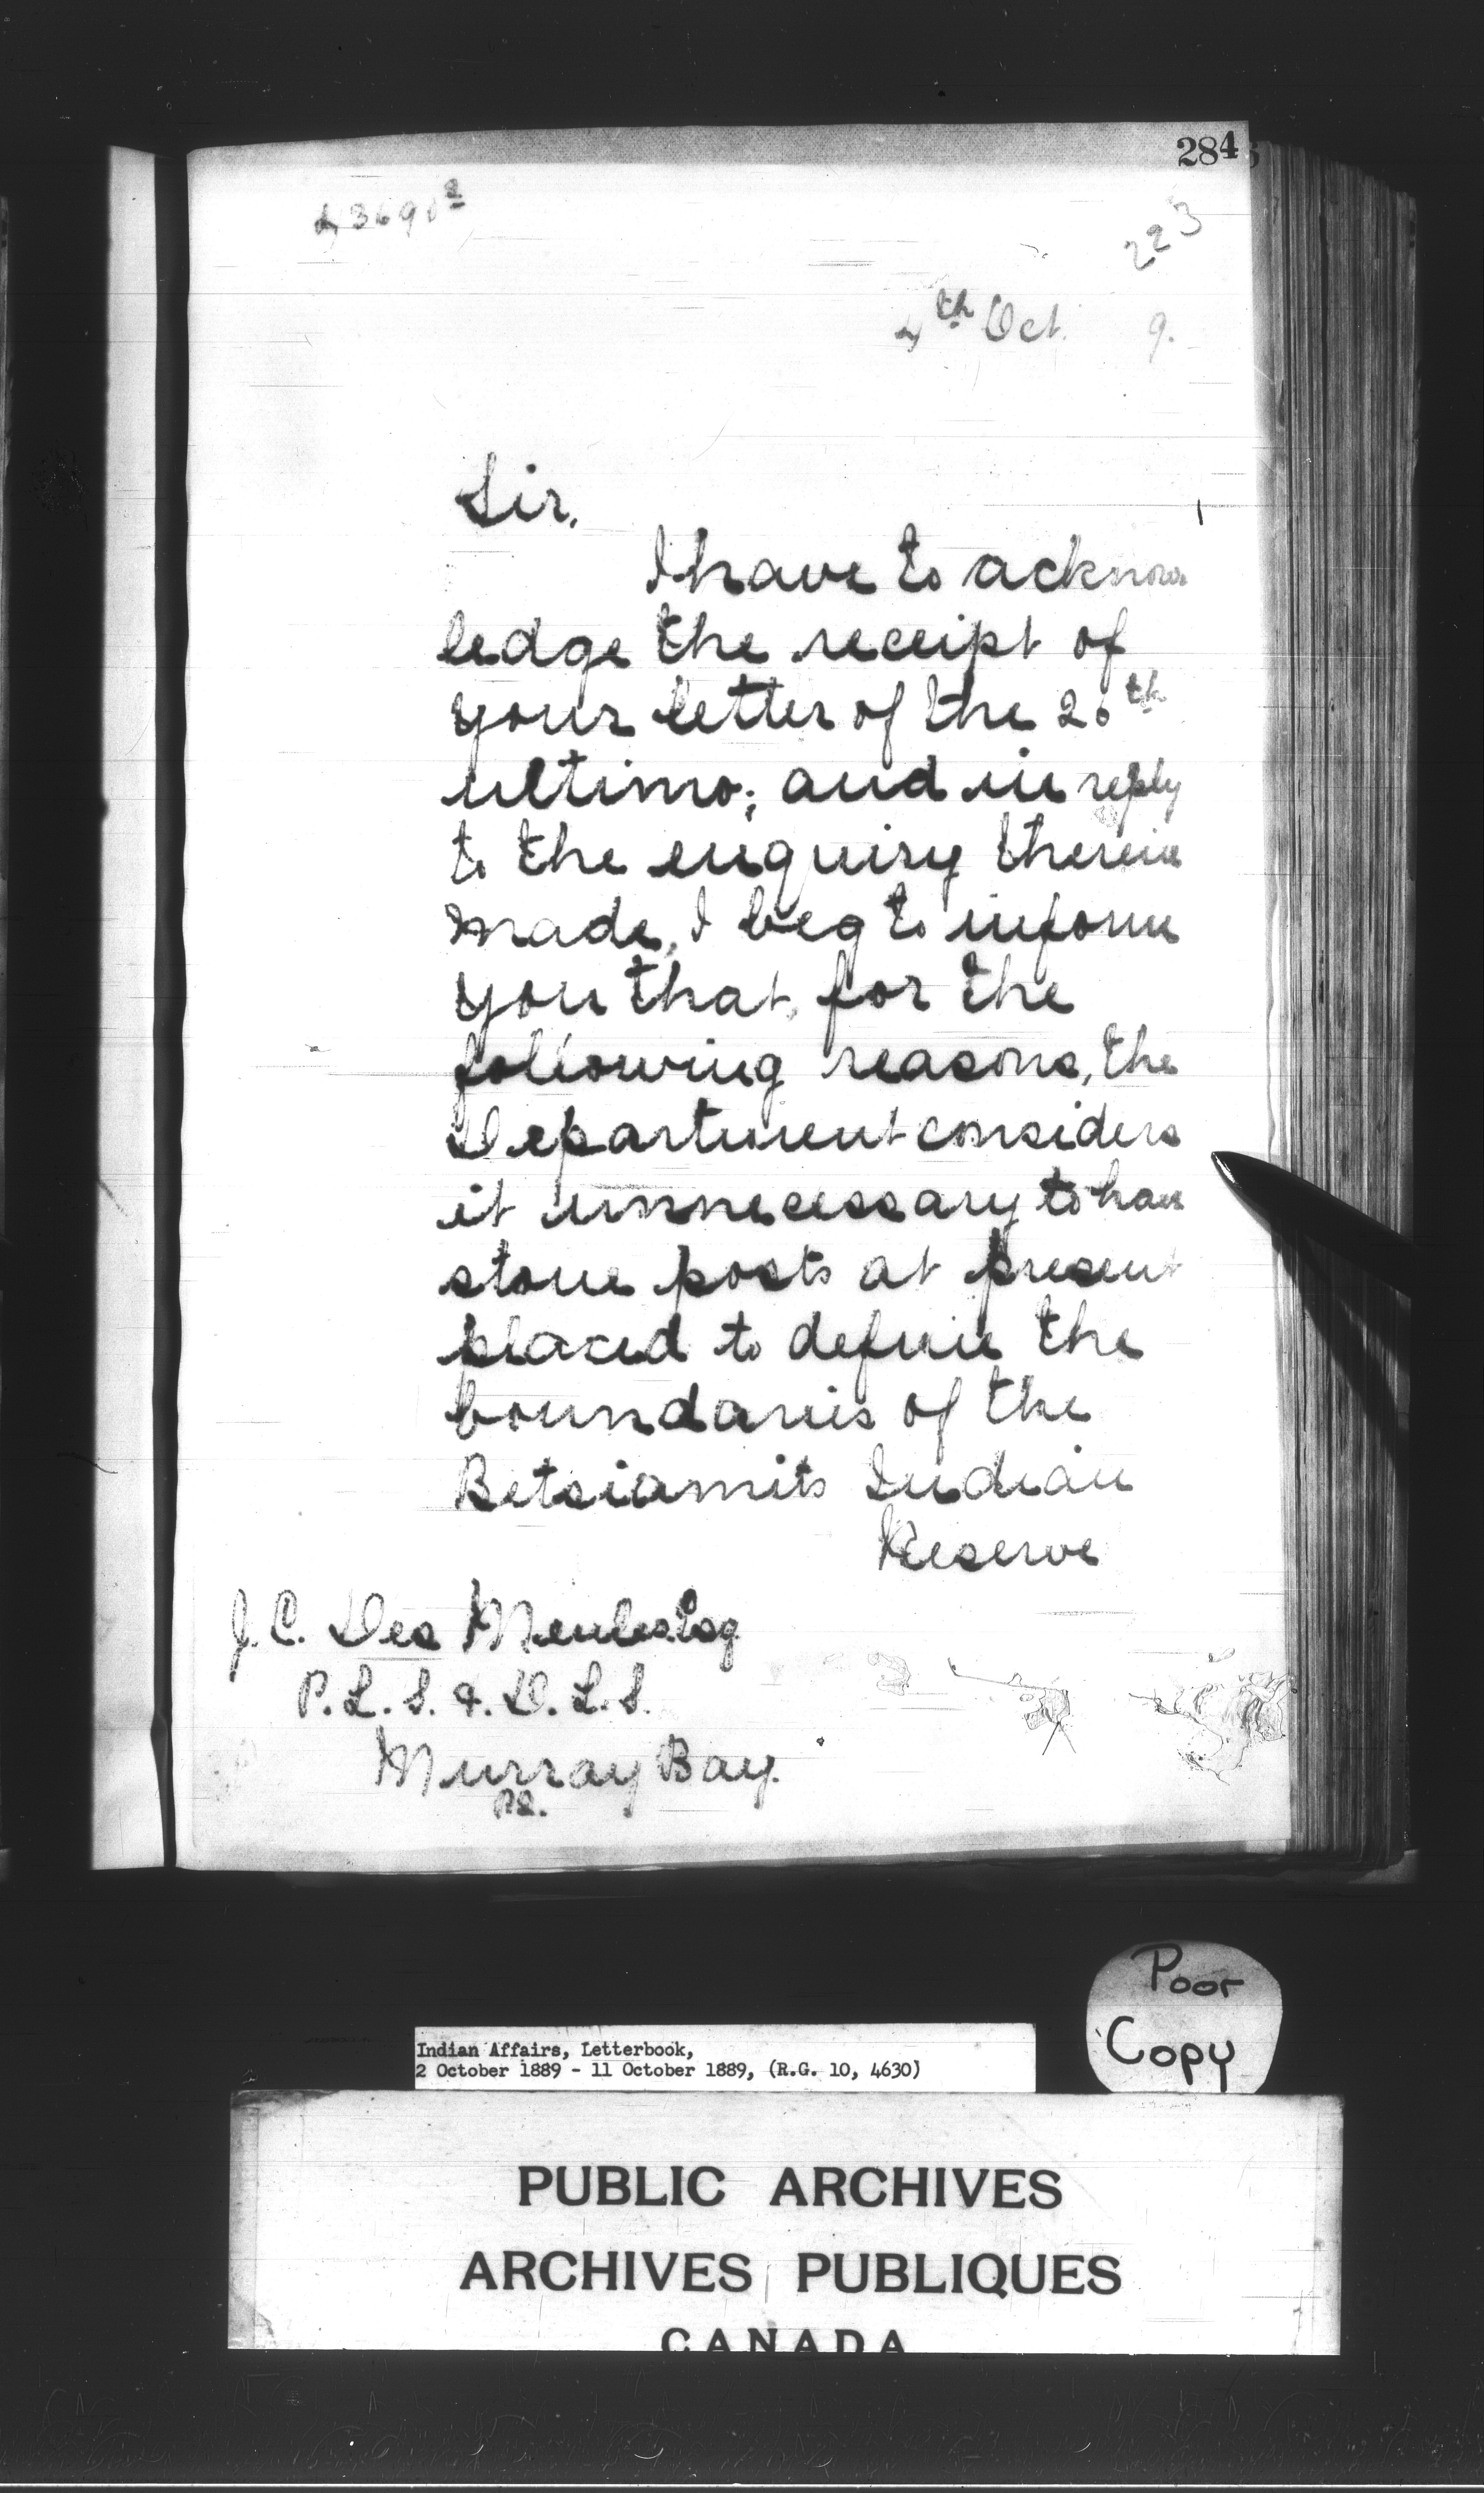 284
223
4th Oct. 9.
Sir,
I have to acknow
ledge the receipt of
your letter of the 20th
ultimo; and in reply
to the enquiry therein
made, I beg to inform
you that, for the
following reasons, the
Department considers
it unnecessary to have
stone posts at present
placed to define the
boundaries of the
Betsiamits Indian
Reserve
J. C. Des Meules Esq
P. L. S. & D. L. S.
Murray Bay.
P.Q.
Poor
Copy
Indian Affairs, Letterbook,
2 October 1889 - 11 October 1889, (R.G. 10, 4630)
PUBLIC ARCHIVES
ARCHIVES PUBLIQUES
CANADA